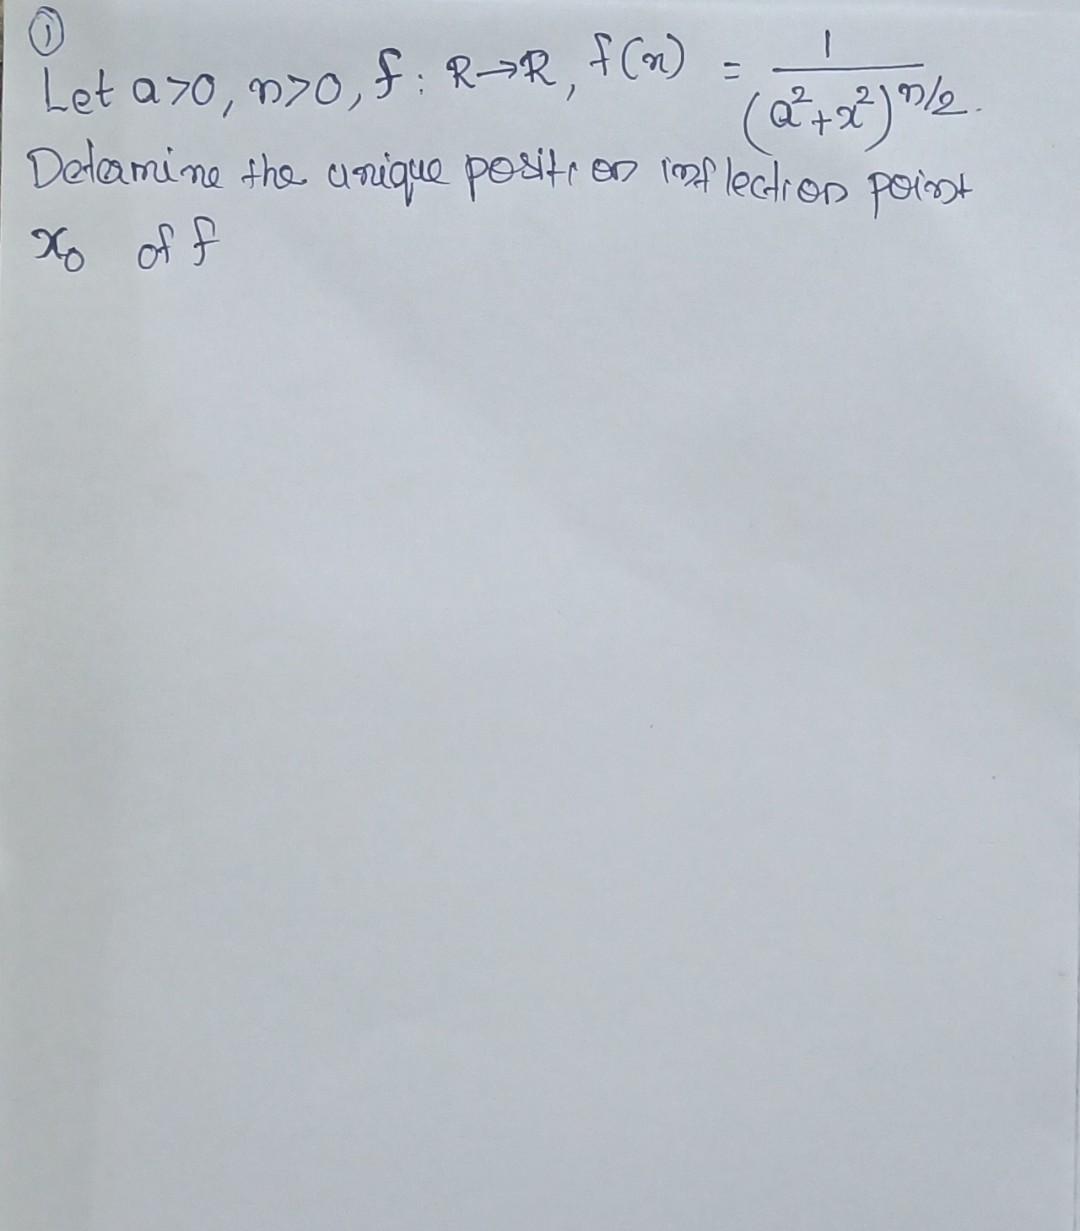 ①
Let a>0, n>0, f: R→R, f(x) = 1/(a²+x²)^n/2.
Determine the unique position inflection point
x₀ of f